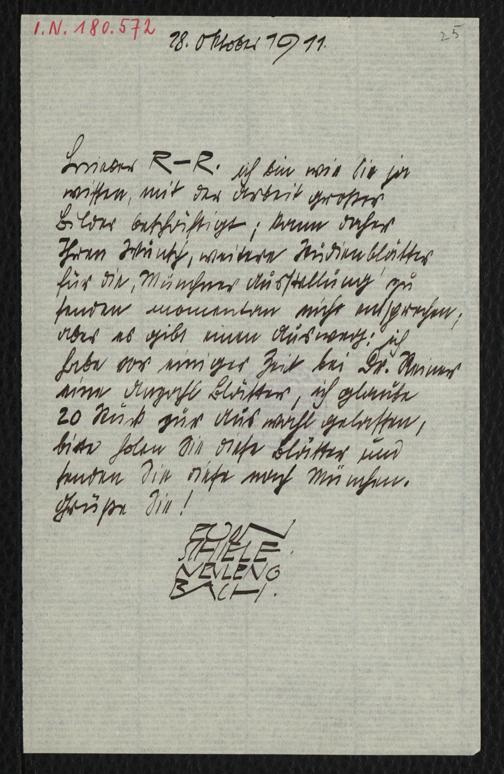 I.N. 180.572
25
28. Oktober 1911.
Lieber R–R. ich bin wie Sie ja
wissen, mit der Arbeit großer
Bilder beschäftigt; kann daher
Ihren Wunsch, weitere Studienblätter
für die, Münchner Ausstellung' zu
senden momentan nicht entsprechen;
aber es gibt einen Ausweg: ich
habe vor einiger Zeit bei Dr. Reiner
eine Anzahl Blätter, ich glaube
20 Stück zur Auswahl gelassen,
bitte holen Sie diese Blätter und
senden Sie diese nach München.
Grüße Sie!
EGON
SCHIELE
NEULENG
BACH.